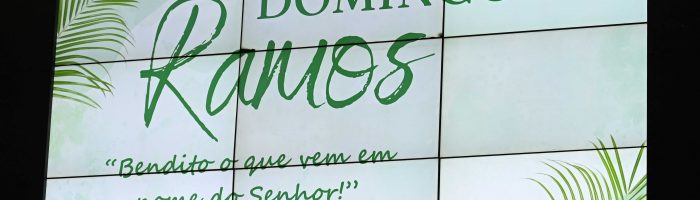 DOMINGO
Ramos
“Bendito o que vem em
nome do Senhor!”